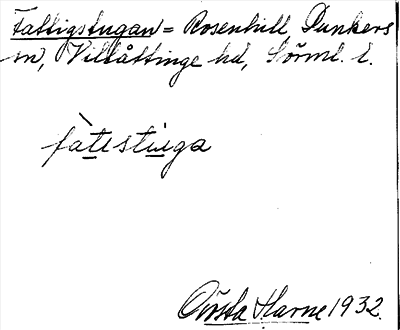 Fattigstugan = Rosenhill, Dunkers
sn, Villåttinge hd, Sörml. l.
fàtestuga
Gösta Harne 1932.